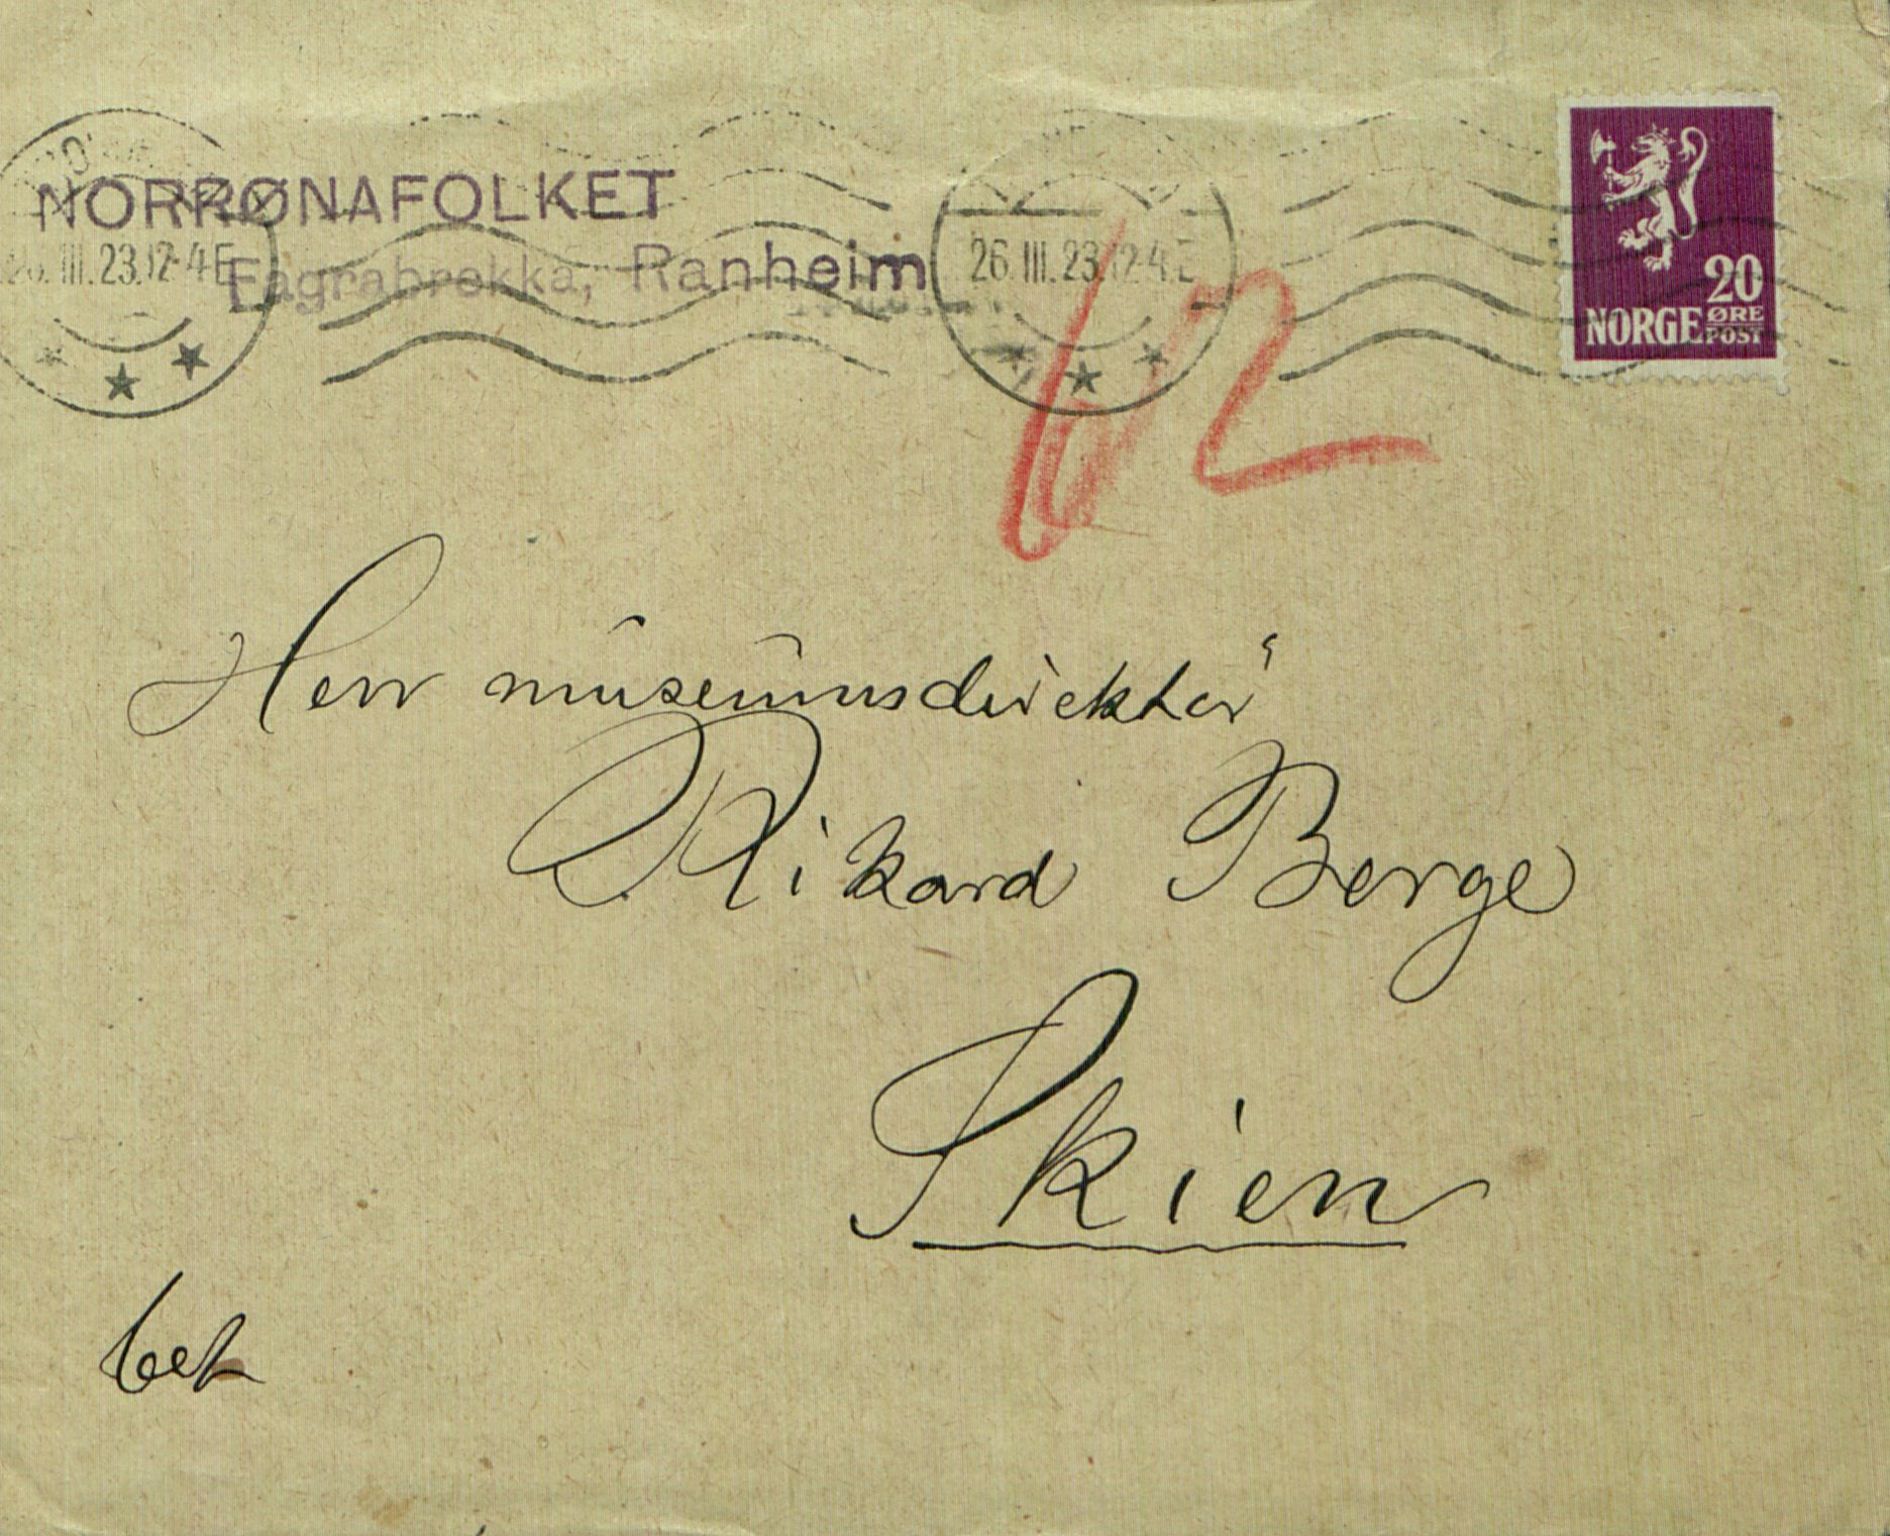 NORRØNAFOLKET
Fagrabrekka, Ranheim
26.III.23.12-4E
26.III.23.12-4E
20
ØRE
NORGE POST
62
Herr museumsdirektør
Rikard Berge
Skien
bet